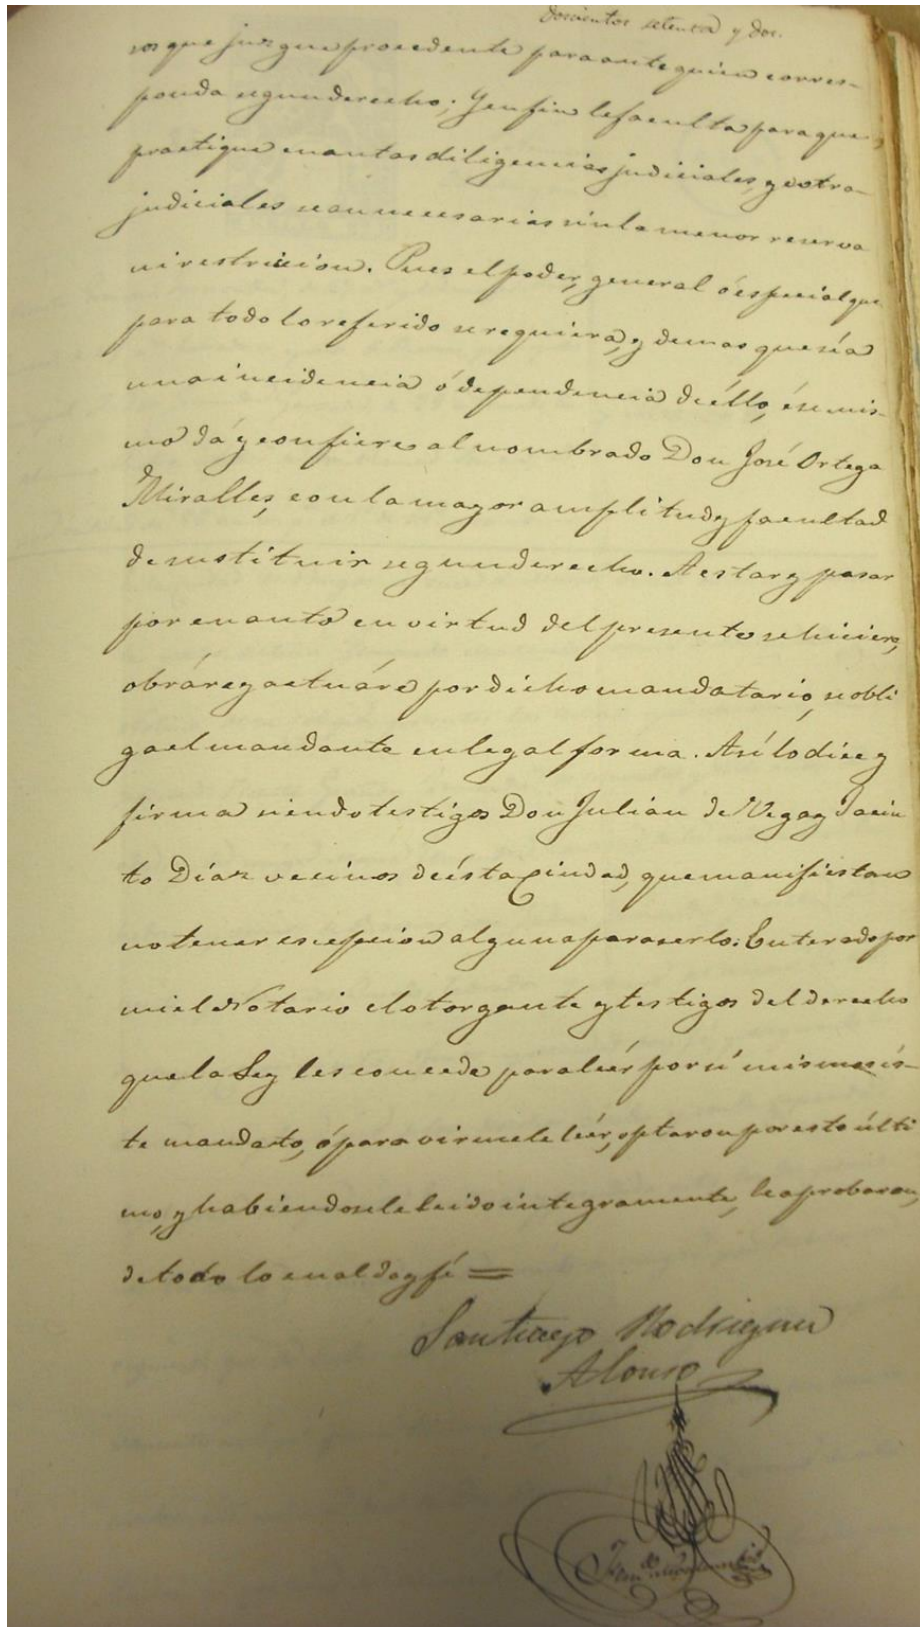 doscientos setenta y dos.
sos que juzgue procedente para ante quien corres-
ponda segun derecho; Y en fin le faculta para que
practique cuantas diligencias judiciales, y estra-
judiciales sean necesarias sin la menor reserva
ni restriccion. Pues el poder, general ó especial que
para todo lo referido se requiera, y demas que séa
una incidencia ó dependencia de éllo, ése mis-
mo dá y confiere al nombrado Don José Ortega
Miralles, con la mayor amplitud y facultad
de sustituir segun derecho. A estar y pasar
por cuanto en virtud del presente se hiciere,
obráre y actuáre por dicho mandatario, se obli
ga el mandante en legal forma. Así lo dice y
firma siendo testigos Don Julian de Vega y Jacin
to Díaz vecinos de ésta Ciudad, que manifiestan
no tener escepcion alguna para serlo: Enterado por
mi el Notario el otorgante y testigos del derecho
que la Ley les concede para leér por sí mismos és-
te mandato, ó para oirmele leér, optaron por esto últi
mo, y habiendosele leido integramente, le aprobaron,
de todo lo cual doy fé =
Santiago Rodriguez
Alonso